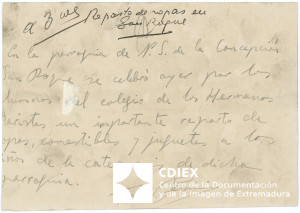 Reparto de ropas en
San Roque
En la parroquia de N.S. de la Concepción
San Roque se celebró ayer por los
alumnos del colegio de los Hermanos
aristas un importante reparto de
opas, comestibles y juguetes a los
ños de la catequesis de dicha
arroquia.
CDIEX
Centro de la Documentación
y de la Imagen de Extremadura